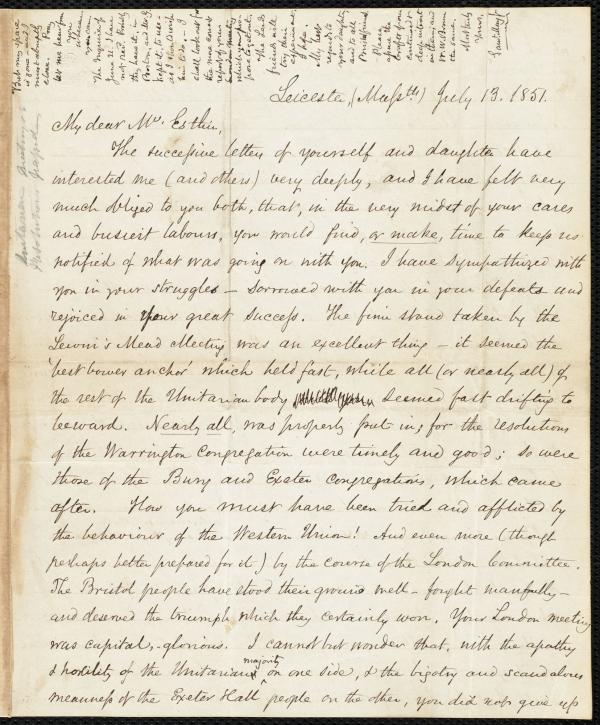 But my space
is one used, I
must abruptly
close. Pray
let me hear from
you
when
you can.
The Inquirer of
June 21, I have
not rec'd.
they have it, in
Boston, and
kept it, to use
I shall look out for
the most correct
report of your
London meeting
The Leeds
friends will
try their
I hope.
My best
regards to
your daughter
and to all
Bristol friends
Please
the
in them, and
W. W. Brown
the same.
Most truly
Yours,
Sam'l May Jr.
Leicester, (Massts.) July 13. 1851.
My dear Mr. Estlin,
The successive letters of yourself and daughter have
interested me (and others) very deeply, and I have felt very
much obliged to you both, that, in the very midst of your cares
and busiest labours, you would find, or make, time to keep us
notified of what was going on with you. I have sympathized with
you in your struggles – sorrowed with you in your defeats and
rejoiced in your great success. The firm stand taken by the
Lewin's Mead Meeting was an excellent thing – it seemed the
'best bower anchor' which held fast, while all (or nearly all) of
the rest of the Unitarian body seemed fast drifting to
leeward. Nearly all, was properly put in, for the resolutions
of the Warrington Congregation were timely and good; so were
those of the Bury and Exeter congregations, which came
after. How you must have been tried and afflicted by
the behaviour of the Western Union! And even more (though
perhaps better prepared for it) by the course of the London Committee.
The Bristol people have stood their ground well – fought manfully –
and deserved the triumph which they certainly won. Your London meeting
was capital, – glorious. I cannot but wonder that, with the apathy
& hostility of the Unitarian majority on one side, & the bigotry and scandalous
meanness of the Exeter Hall people on the other, you did not give up